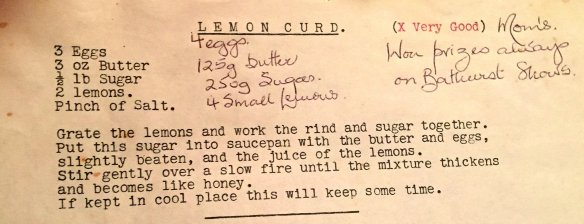 LEMON CURD. (X Very Good) Mom's.
3 Eggs 4 eggs. Won prizes always
3 oz Butter 125g butter on Bathurst Shows.
½ lb Sugar 250g Sugar.
2 lemons. 4 Small lemons.
Pinch of Salt.
Grate the lemons and work the rind and sugar together.
Put this sugar into saucepan with the butter and eggs,
slightly beaten, and the juice of the lemons.
Stir gently over a slow fire until the mixture thickens
and becomes like honey.
If kept in cool place this will keep some time.